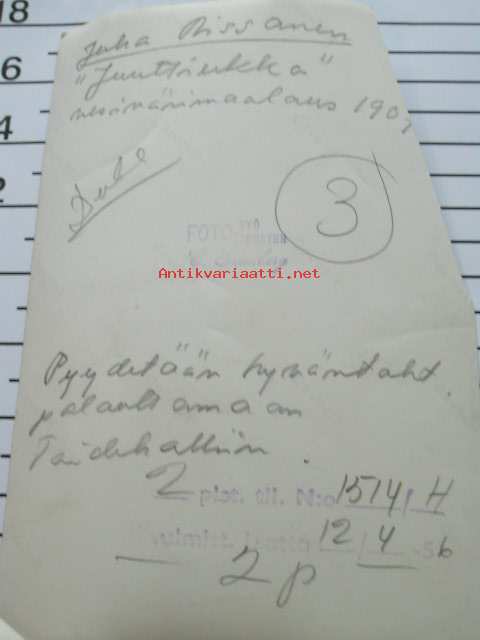 18
6
4
2
Juho Rissanen
"Juuttiukko"
vesivärimaalaus 190
3
FOTO
Antikvariaatti.net
Pyydetään hyväntaht.
palauttamaan
Taidehalliin.
2 pist. til. N:o 1574/H
Valmist. 12/4-56
2 p